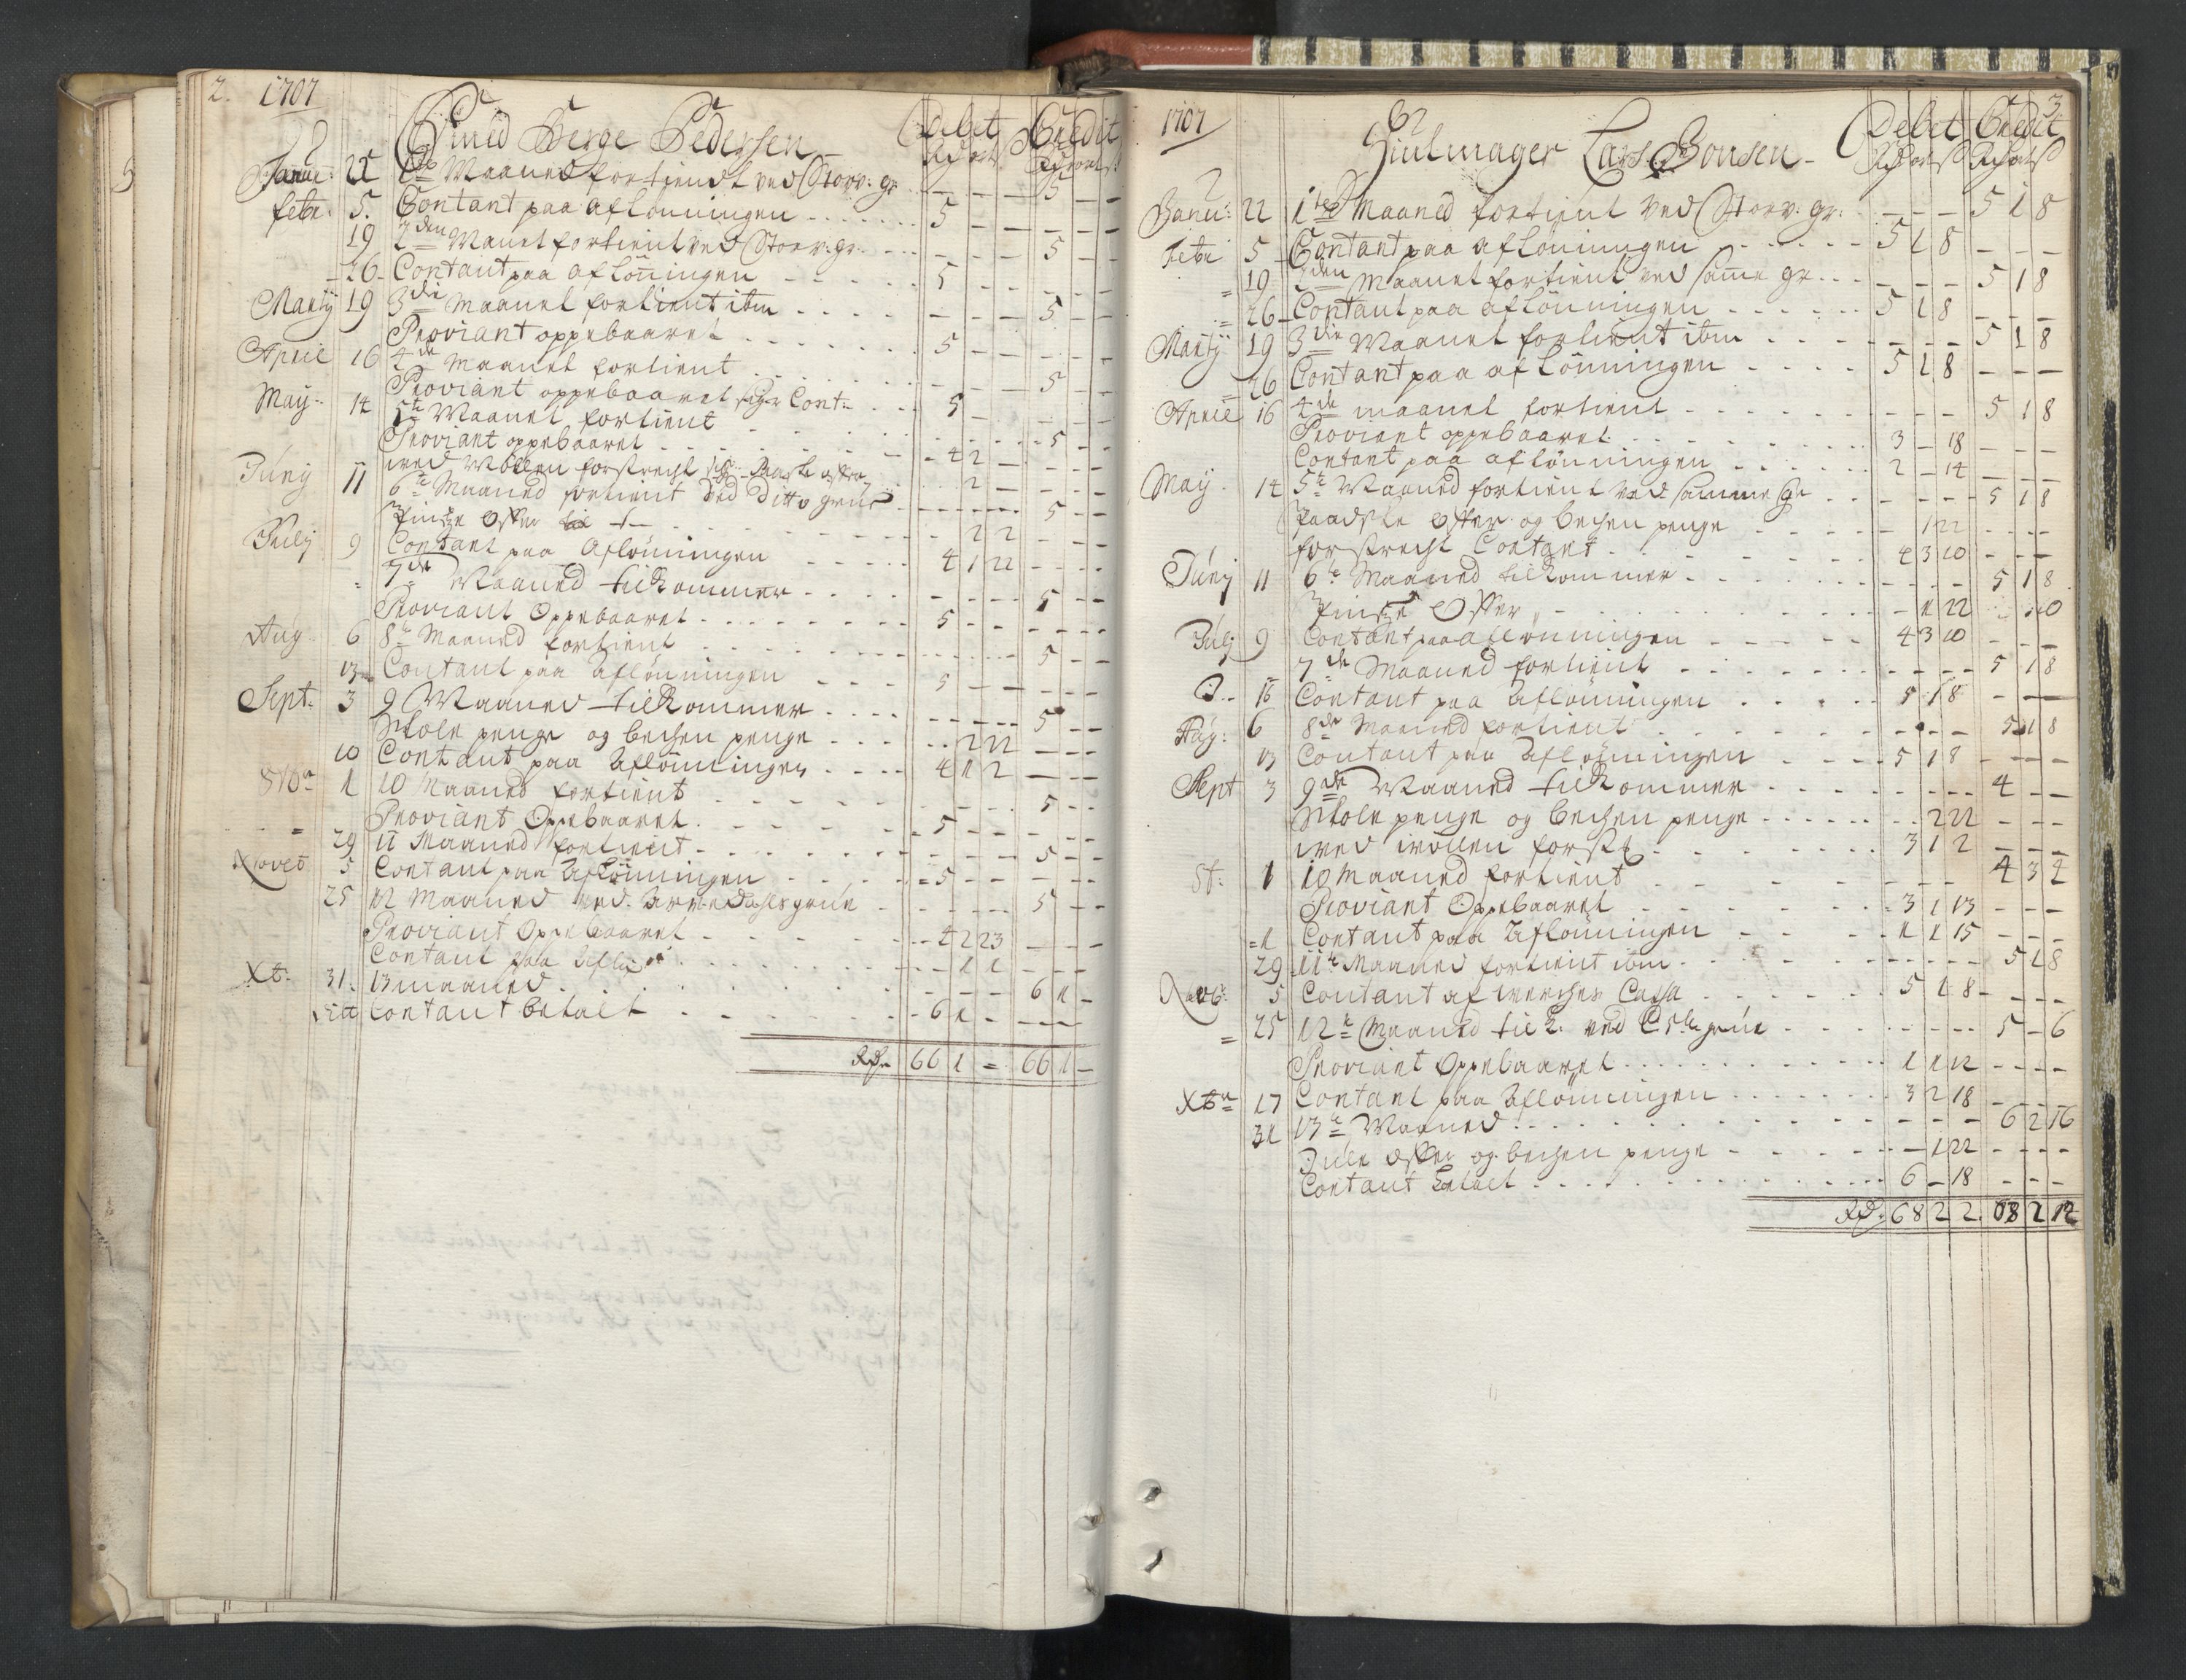 2. 1707
Smed Berge Pedersen Debet Credit
Janu: 22 1te Maaned fortiendt ved Storv: gr - - - 5 - -
febr. 5. Contant paa aflönningen 5 - - - - -
19 2den Maanet fortient ved Storv: gr: - - - 5 - -
26 Contant paa aflönningen 5 - - - - -
Martij 19 3die maanet fortient itm - - - 5 - -
Proviant oppebaaret 5 - - - - -
April 16 4de maanet fortient - - - 5 - -
Proviant oppebaaret Cont: 5 - - - - -
May 14 5te Maanet fortient - - - 5 - -
Proviant oppebaaret 4 2 - - - -
ved Wollen forstrecht - 2 - - - -
Juny 11 6te Maaned fortient ved Ditto grue - - - 5 - -
Pintze Offer - 2 2 - - -
July 9 Contant paa Aflönningen 4 1 22 - - -
= 7de Maaned tilkommer - - - 5 - -
Proviant Oppebaaret 5 - - - - -
Aug 6 8te Maaned fortient - - - 5 - -
13 Contant paa Aflönningen 5 - - - - -
Sept. 3 9 Maaned tilkommer - - - 5 - -
Skole penge og bechen penge - 2 22 - - -
10 Contant paa Aflönningen 4 1 2 - - -
8tbr 1 10 Maaned fortient - - - 5 - -
Proviant Oppebaaret 5 - - - - -
= 29 11 Maaned fortient - - - 5 - -
Novet 5 Contant paa Aflönningen 5 - - - - -
25 12 Maaned ved Arvedahls grue - - - 5 - -
Proviant Oppebaaret 4 2 23 - - -
Contant paa Afl - 1 1 - - -
Xb: 31. 13 maaned - - - 6 1 -
Contant betalt 6 1 - - - -
Rdr 66 1 = 66 1 -
1707 3
Hiulmager Lars Jonsen Debet Credit
Janu: 22 1te Maaned fortient ved Storv: gr: - - - 5 1 8
Febr 5 Contant paa aflönningen 5 1 8 - - -
= 19 2den Maanet fortient ved samme gr - - - 5 1 8
= 26 Contant paa aflönningen 5 1 8 - - -
Martij 19 3die Maanet fortient itm - - - 5 1 8
= 26 Contant paa aflönningen 5 1 8 - - -
April 16 4de maanet fortient - - - 5 1 8
Proviant oppebaaret 3 - 18 - - -
Contant paa aflönningen 2 - 14 - - -
May 14 5te Maaned fortient ved samme gr - - - 5 1 8
Paadske Offer og bechen penge - 1 22 - - -
forstrecht Contant 4 3 10 - - -
Juny 11 6te Maaned tilkommer - - - 5 1 8
Pintze Offer - 1 22
July 9 Contant paa aflönningen 4 3 10 - - -
7de Maaned fortient - - - 5 1 8
D.. 16 Contant paa Aflönningen 5 1 8 - - -
Aug: 6 8de Maaned fortient - - - 5 1 8
13 Contant paa Aflönningen 5 1 8 - - -
Sept 3 9de Maaned tilkommer - - - 4 - -
Skole penge og bechen penge - 2 22 - - -
ved wollen forst 3 1 2 - - -
8t: 1 10 Maaned fortient - - - 4 3 4
Proviant Oppebaaret 3 1 13 - - -
= 1 Contant paa Aflönningen 1 1 15 - - -
29 11te Maaned fortient itm - - - 5 1 8
Novb: 5 Contant af werches Cassa 5 1 8 - - -
= 25 12te Maaned til k. ved grue - - - 5 - 6
Proviant Oppebaaret 1 1 12 - - -
Xbr 17 Contant paa Aflönningen 3 2 18 - - -
31 13te Maaned - - - 6 2 16
Jule Offer og bechen penge - 1 22 - - -
Contant betalt 6 - 18 - - -
Rdr. 68 2 2. 68 2 12